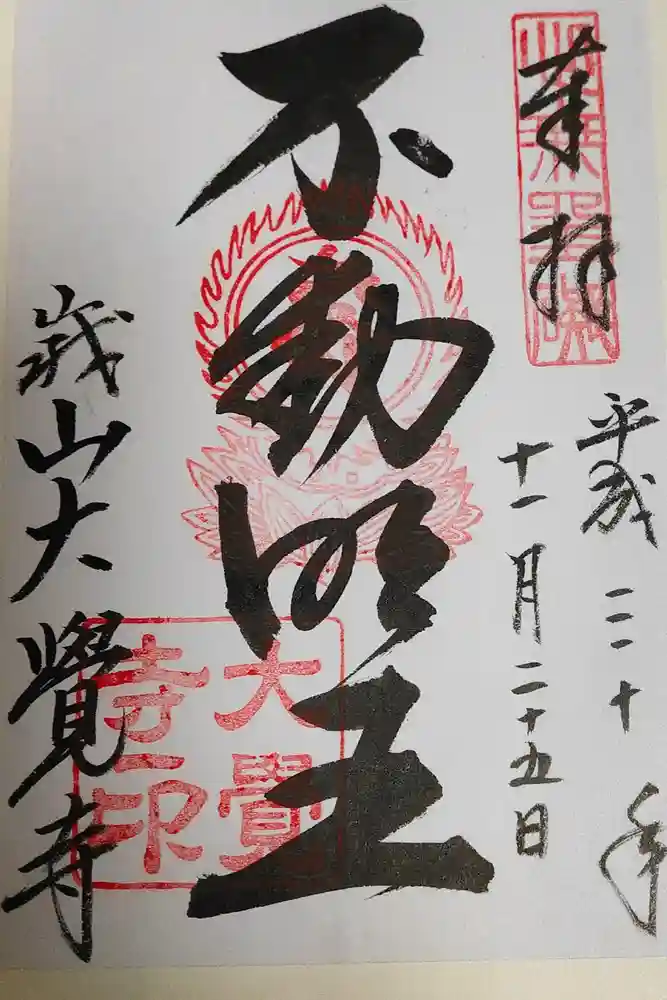 奉拝
平成三十年
十一月二十五日
不動明王
峨山大覺寺
大覺
寺印